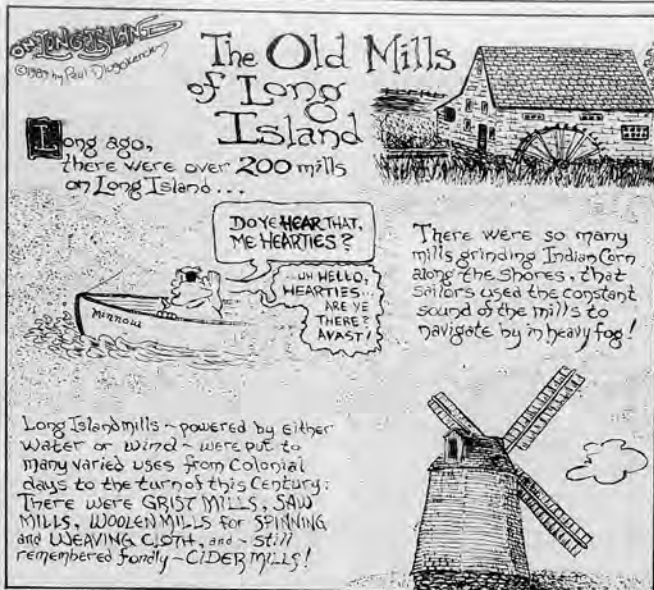 on Long Island
©1989 by Paul Dlugokencky
The Old Mills
of Long
Island
Long ago,
there were over 200 mills
on Long Island...
DO YE HEAR THAT,
ME HEARTIES?
...UH HELLO,
HEARTIES...
ARE YE
THERE?
AVAST!
Minnow
There were so many
mills grinding Indian Corn
along the shores, that
sailors used the constant
sound of the mills to
navigate by in heavy fog!
Long Island mills ~ powered by either
water or wind ~ were put to
many varied uses from Colonial
days to the turn of this Century:
There were GRIST MILLS, SAW
MILLS, WOOLEN MILLS for SPINNING
and WEAVING CLOTH, and ~ still
remembered fondly ~ CIDER MILLS!